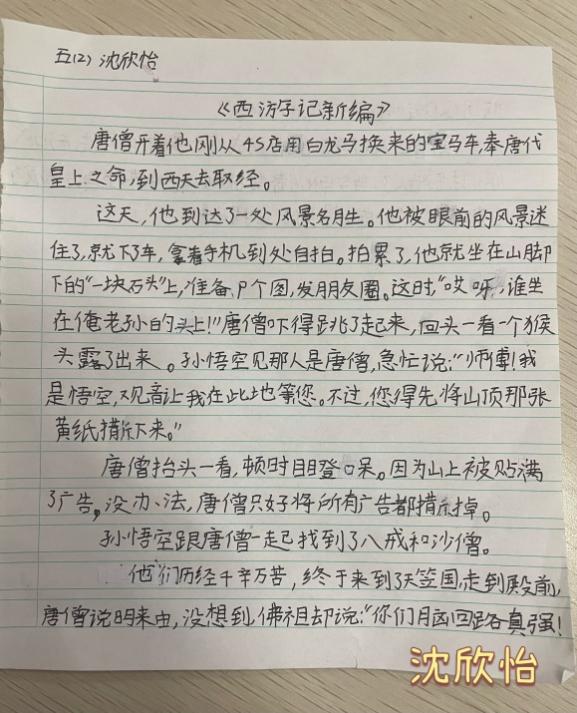 五(2) 沈欣怡
《西游记新编》
唐僧开着他刚从4S店用白龙马换来的宝马车,奉唐代
皇上之命,到西天去取经。
这天,他到达了一处风景名胜。他被眼前的风景迷
住了,就下了车,拿着手机到处自拍。拍累了,他就坐在山脚
下的“一块石头”上,准备P个图,发朋友圈。这时,“哎呀,谁坐
在俺老孙的头上!”唐僧吓得跳了起来,回头一看一个猴
头露了出来。孙悟空见那人是唐僧,急忙说:“师傅!我
是悟空,观音让我在此地等您。不过,您得先将山顶那张
黄纸撕下来。”
唐僧抬头一看,顿时目瞪口呆。因为山上被贴满
了广告,没办法,唐僧只好将所有广告都撕掉。
孙悟空跟唐僧一起找到了八戒和沙僧。
他们历经千辛万苦,终于来到了天竺国,走到殿前,
唐僧说明来由,没想到,佛祖却说:“你们脑回路真强!
沈欣怡